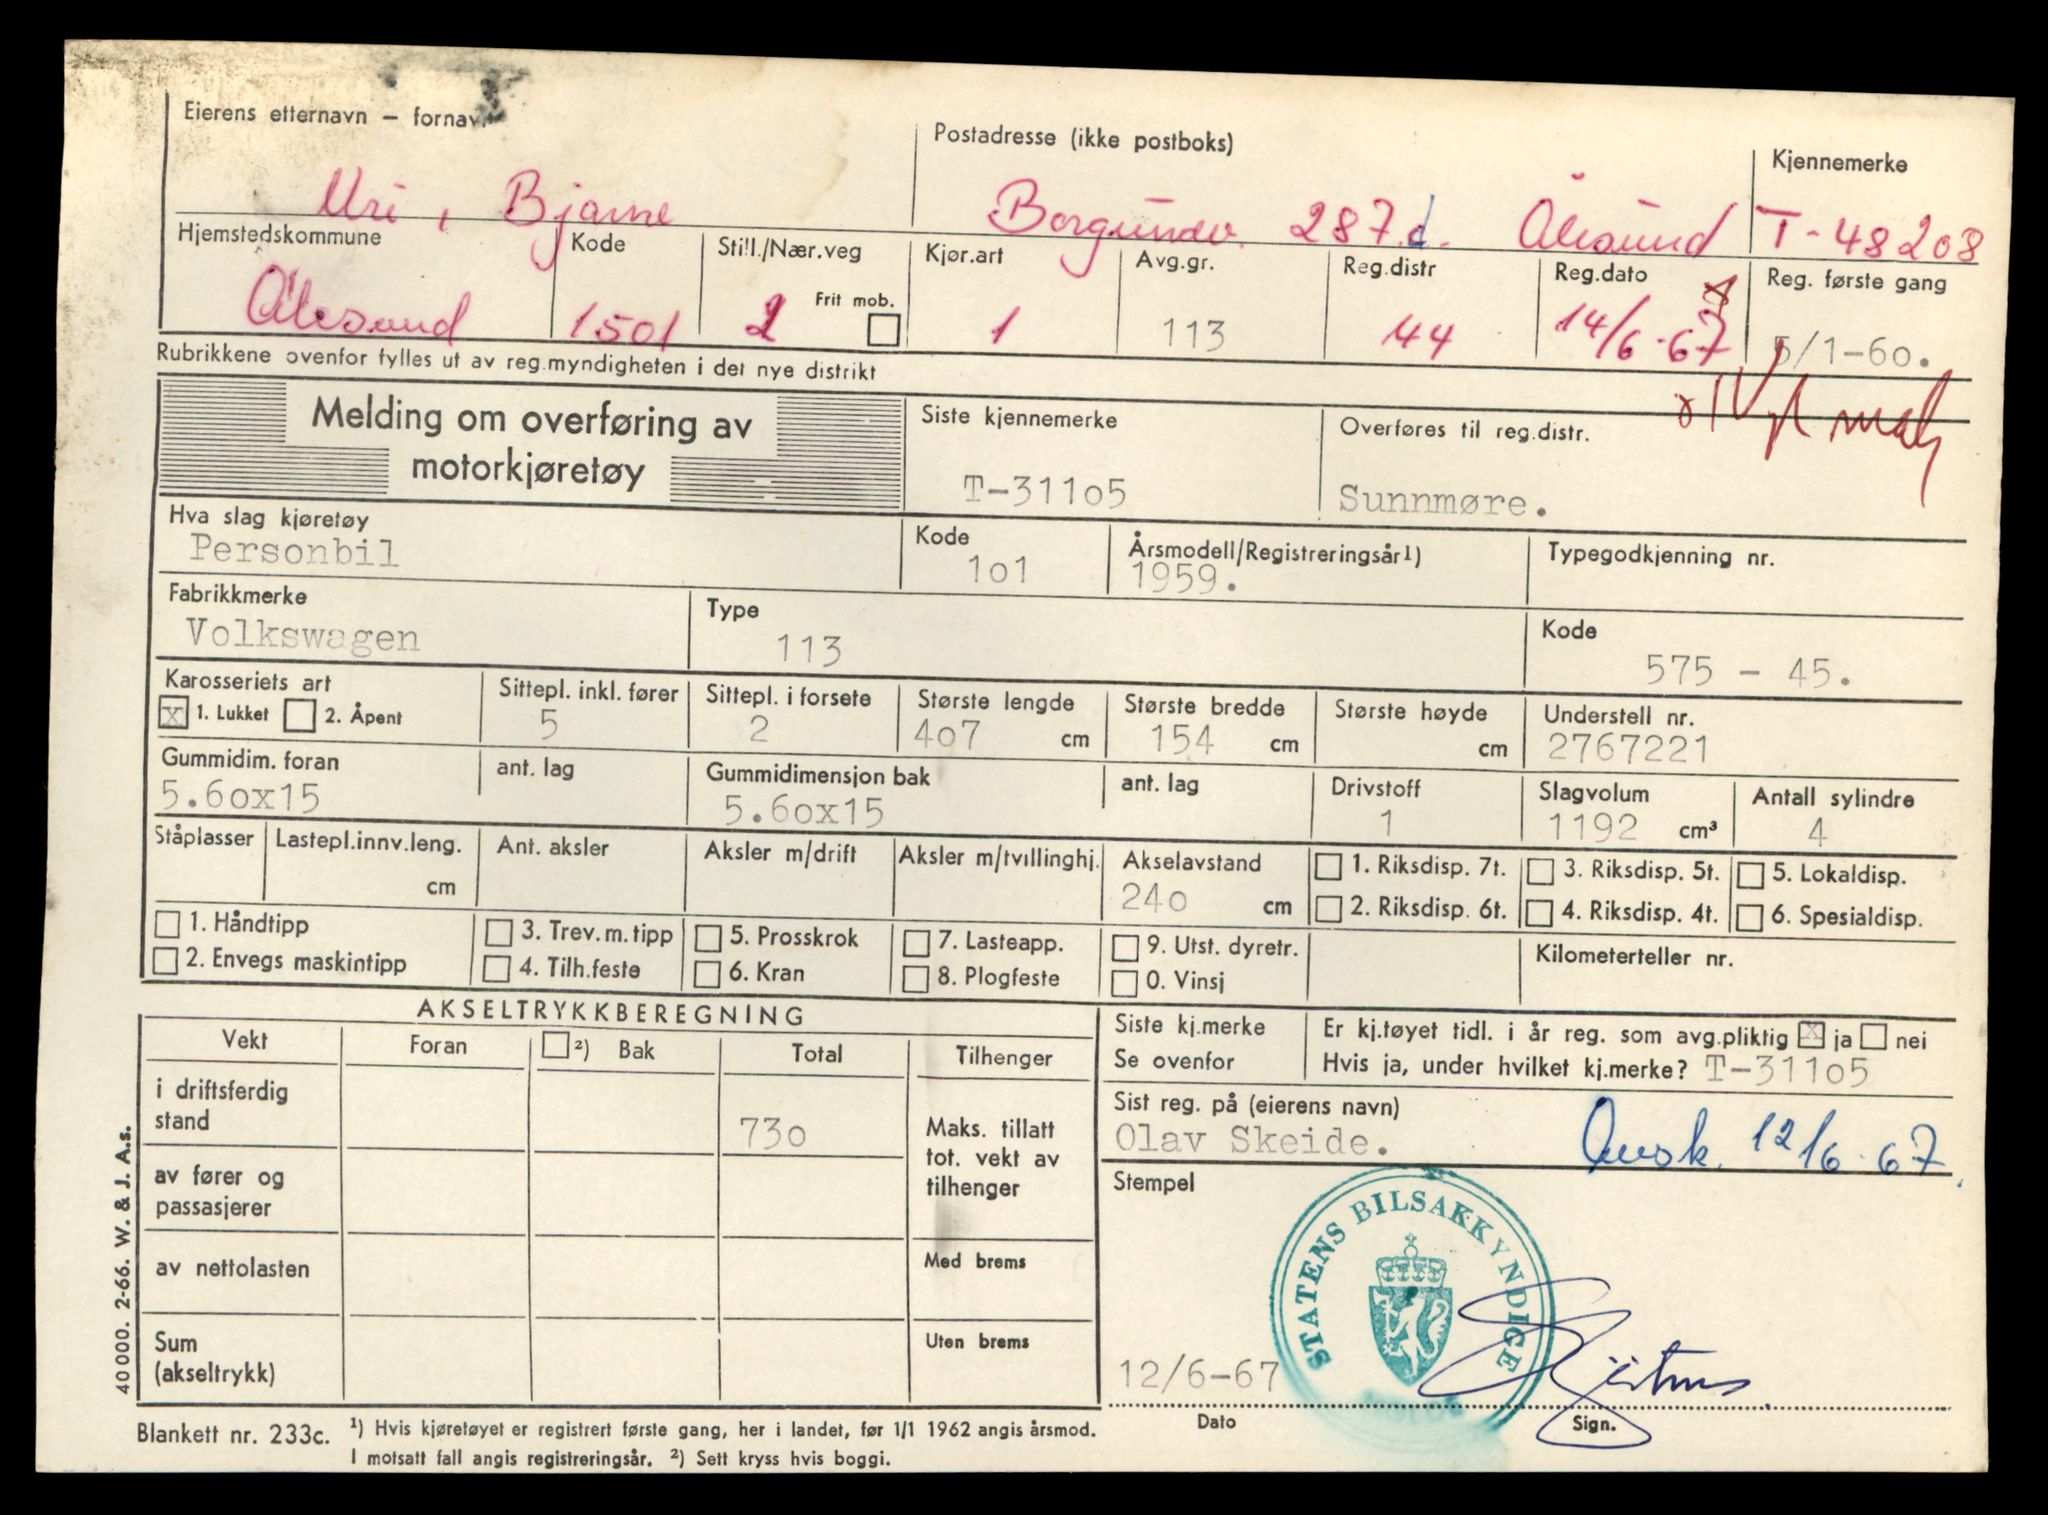 Eierens etternavn – fornavn
Postadresse (ikke postboks)
Kjennemerke
Uri, Bjarne
Borgundv. 287.d. Ålesund
T-48208
Hjemstedskommune
Kode
Still./Nær.veg
Kjør.art
Avg.gr.
Reg.distr
Reg.dato
Reg. første gang
Ålesund
1501
2
Frit mob.
1
113
44
14/6-67
5/1-60.
Rubrikkene ovenfor fylles ut av reg.myndigheten i det nye distrikt
Melding om overføring av
motorkjøretøy
Siste kjennemerke
T-31105
Overføres til reg.distr.
Sunnmøre.
Hva slag kjøretøy
Personbil
Kode
101
Årsmodell/Registreringsår1)
1959.
Typegodkjenning nr.
Fabrikkmerke
Volkswagen
Type
113
Kode
575 - 45.
Karosseriets art
x 1. Lukket 2. Åpent
Sittepl. inkl. fører
5
Sittepl. i forsete
2
Største lengde
407 cm
Største bredde
154 cm
Største høyde
cm
Understell nr.
2767221
Gummidim. foran
5.60x15
ant. lag
Gummidimensjon bak
5.60x15
ant. lag
Drivstoff
1
Slagvolum
1192 cm³
Antall sylindre
4
Ståplasser
Lastepl.innv.leng.
cm
Ant. aksler
Aksler m/drift
Aksler m/tvillinghj.
Akselavstand
240 cm
1. Riksdisp. 7t.
3. Riksdisp. 5t.
5. Lokaldisp.
2. Riksdisp. 6t.
4. Riksdisp. 4t.
6. Spesialdisp.
1. Håndtipp
3. Trev.m.tipp
5. Prosskrok
7. Lasteapp.
9. Utst. dyretr.
Kilometerteller nr.
2. Envegs maskintipp
4. Tilh.feste
6. Kran
8. Plogfeste
0. Vinsj
AKSELTRYKKBEREGNING
Vekt
Foran
2) Bak
Total
Tilhenger
i driftsferdig
stand
730
Maks. tillatt
tot. vekt av
tilhenger
av fører og
passasjerer
av nettolasten
Med brems
Sum
(akseltrykk)
Uten brems
Siste kj.merke
Se ovenfor
Er kj.tøyet tidl. i år reg. som avg.pliktig x ja nei
Hvis ja, under hvilket kj.merke? T-31105
Sist reg. på (eierens navn)
Olav Skeide.
12/6-67
Stempel
STATENS BILSAKKYNDIGE
12/6-67
Dato
Sign.
40 000. 2-66. W. & J. A.s.
Blankett nr. 233c.
1) Hvis kjøretøyet er registrert første gang, her i landet, før 1/1 1962 angis årsmod.
I motsatt fall angis registreringsår. 2) Sett kryss hvis boggi.